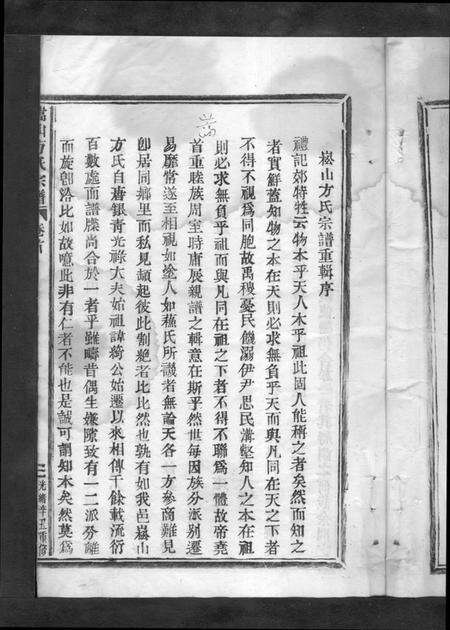 崧山方氏宗譜重輯序
禮記郊特牲云物本乎天人本乎祖此固人能稱之者矣然而知之
者實鮮蓋知物之本在天則必求無負乎天而與凡同在天之下者
不得不視爲同胞故禹稷憂民饑溺伊尹思民溝壑知人之本在祖
則必求無負乎祖而與凡同在祖之下者不得不聯爲一體故帝堯
首重睦族周室時庸展親譜之輯意在斯乎然世每因族分派別遷
易靡常遂至相視如塗人如蘇氏所譏者無論天各一方參商難見
卽居同鄉里而私見頻起彼此割絶者比比然也孰有如我邑崧山
方氏自唐銀青光祿大夫始祖諱綺公始遷以來相傳千餘載流衍
百數處而譜牒尚合於一者乎雖疇昔偶生嫌隙致有一二派分離
而旋卽洛比如故噫此非有仁者不能也是誠可謂知本矣然莫爲
山方氏宗譜
卷首
一
光緒辛丑重修